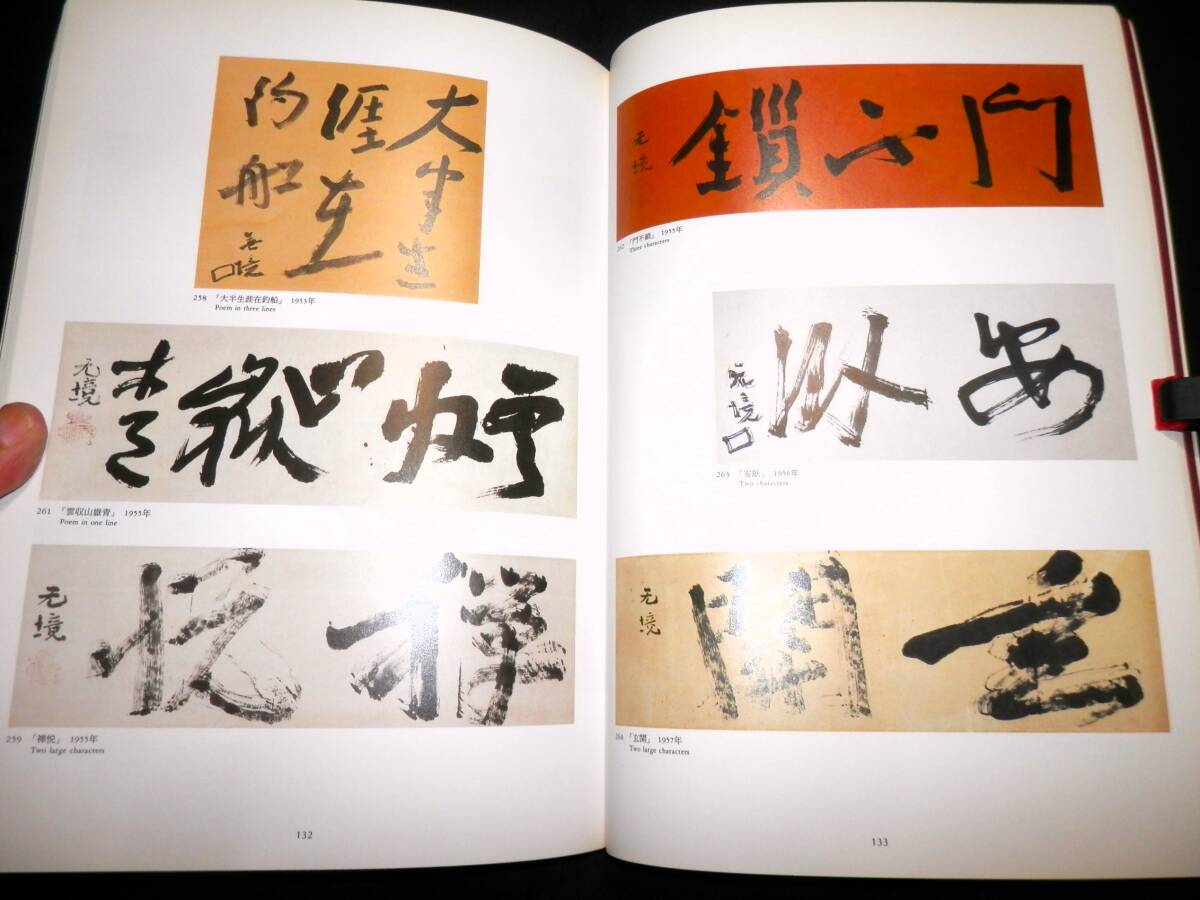 大半生
涯在
釣船
无境
258 「大半生涯在釣船」 1953年
Poem in three lines
雲収山嶽青
无境
261 「雲収山嶽青」 1955年
Poem in one line
禅悦
无境
259 「禅悦」 1955年
Two large characters
132
門不鎖
无境
262 「門不鎖」 1955年
Three characters
安臥
无境
263 「安臥」 1956年
Two characters
玄関
无境
264 「玄関」 1957年
Two large characters
133